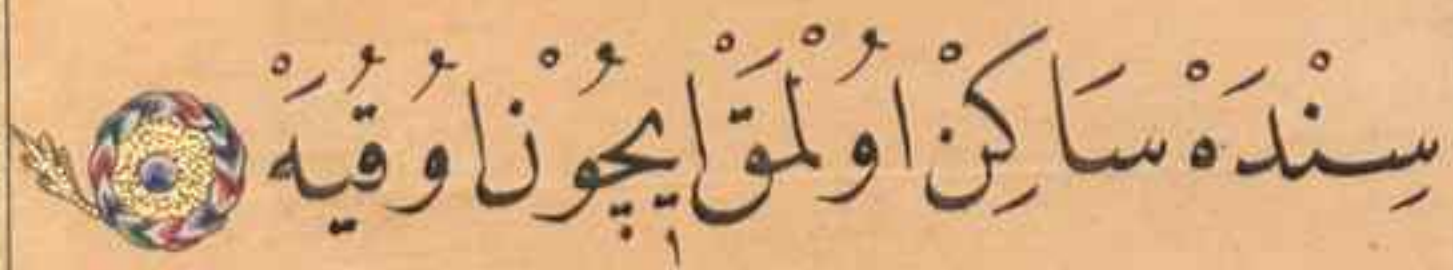 سِنْدَهْ سَاكِنْ اُولْمَقْ اِيچُونْ اُوقُيَهْ